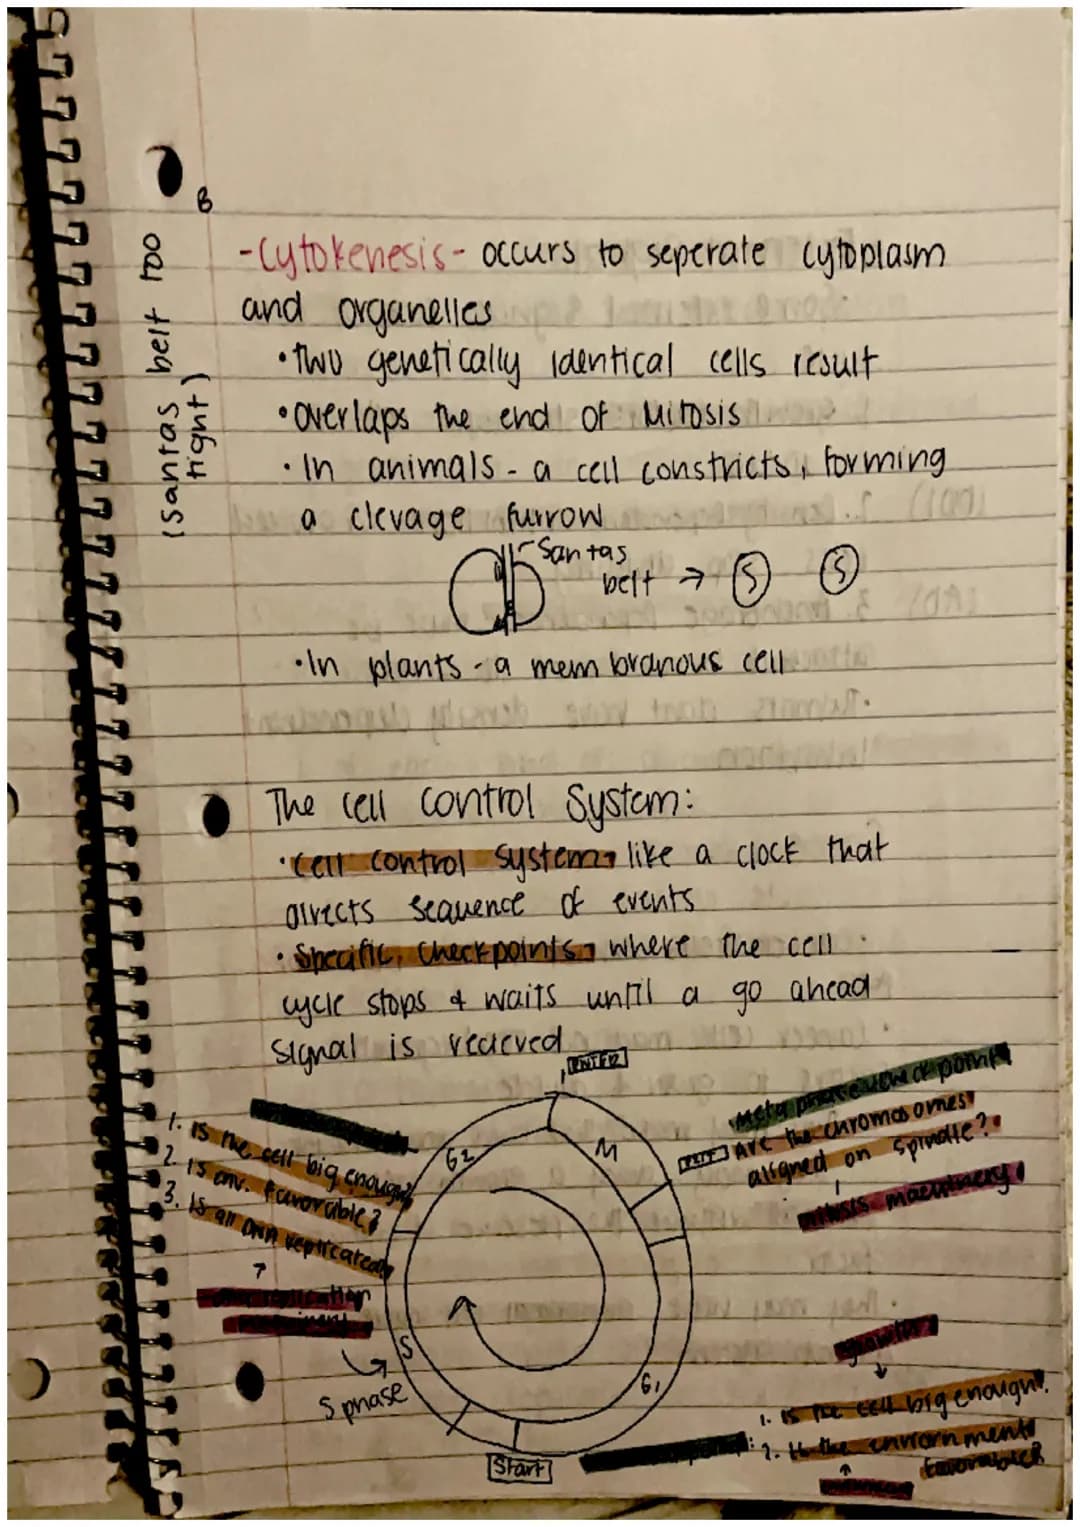 B
(santas belt too
tight)
-Cytokenesis- occurs to seperate cytoplasm
and organelles
•Two genetically identical cells result
•overlaps the end of Mitosis
•In animals - a cell constricts, forming
a clevage furrow
Santas
belt → S S
•In plants - a membranous cell
The Cell Control System:
•Cell control system, like a clock that
directs sequence of events
•Specific, checkpoints, where the cell
cycle stops & waits until a go ahead
signal is recieved
ENTER
Metaphase checkpoint
Are the chromosomes
aligned on spindle?
mitosis machinery
1. Is the cell big enough?
2. Is env. favorable?
3. Is all DNA replicated?
G2
M
S
G1
S phase
Start
growth
1. Is the cell big enough?
2. Is the environment
favorable?